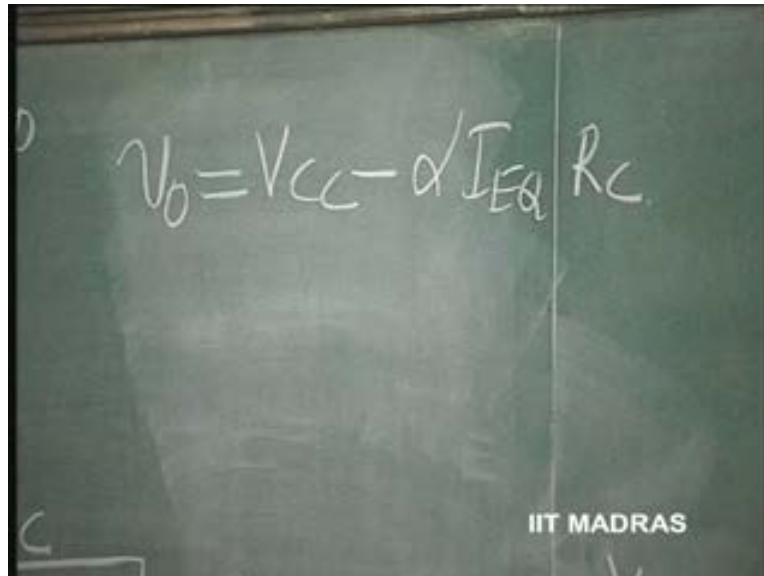 v₀ = V_CC - α I_EQ R_C
C
IIT MADRAS